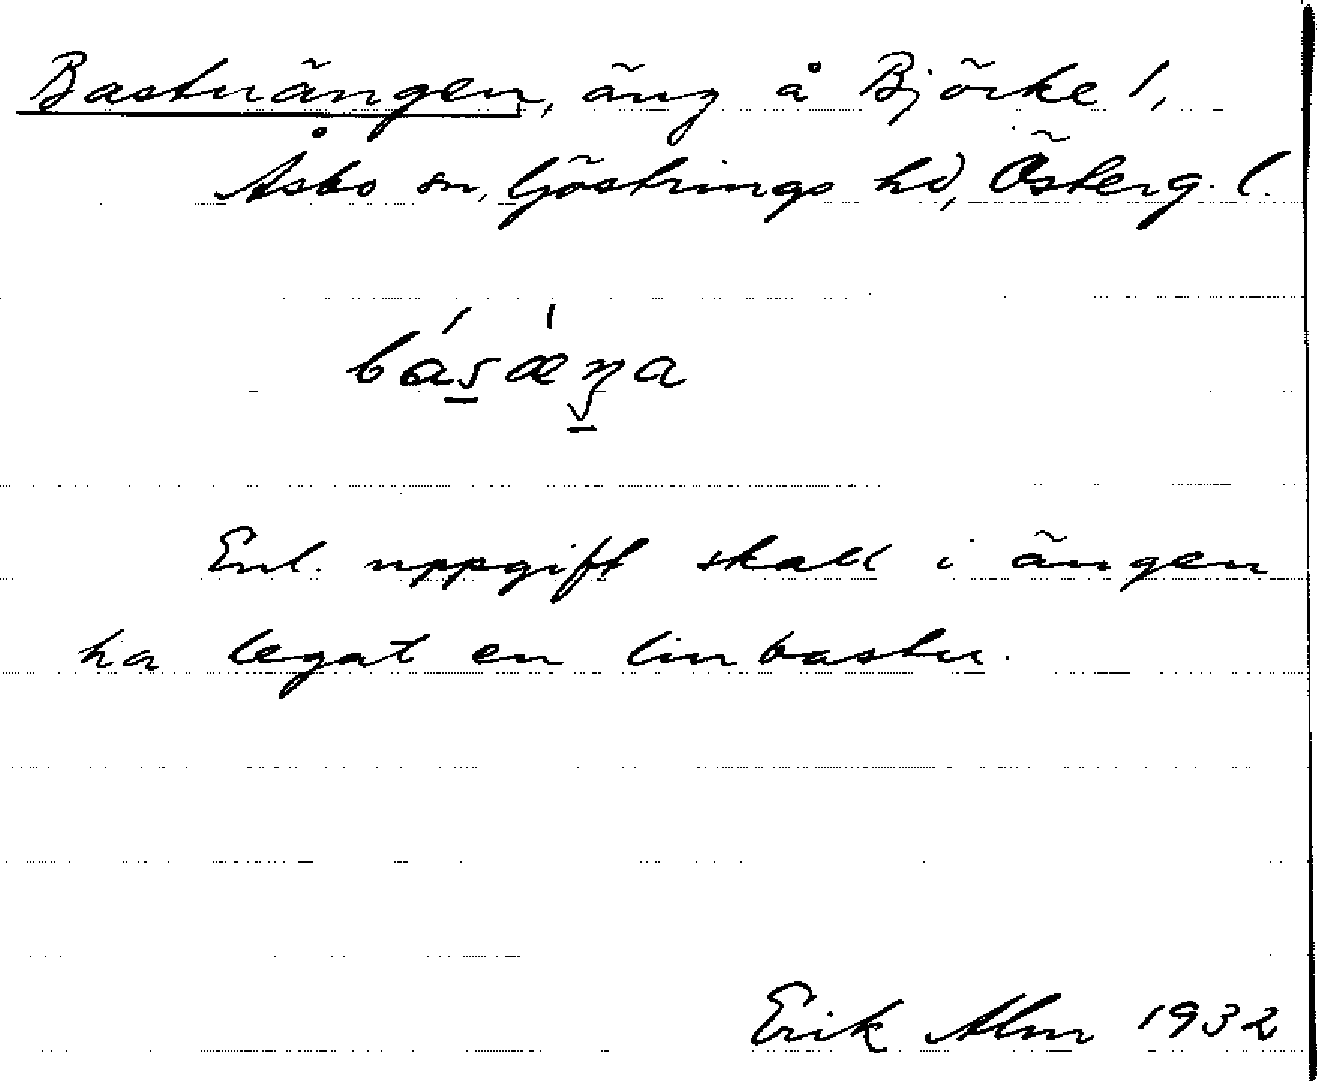 Bastuängen, äng å Björke 1,
Åsbo sn, Göstrings hd, Österg. l.
Enl. uppgift skall i ängen
ha legat en linbastu.
Erik Alm 1932